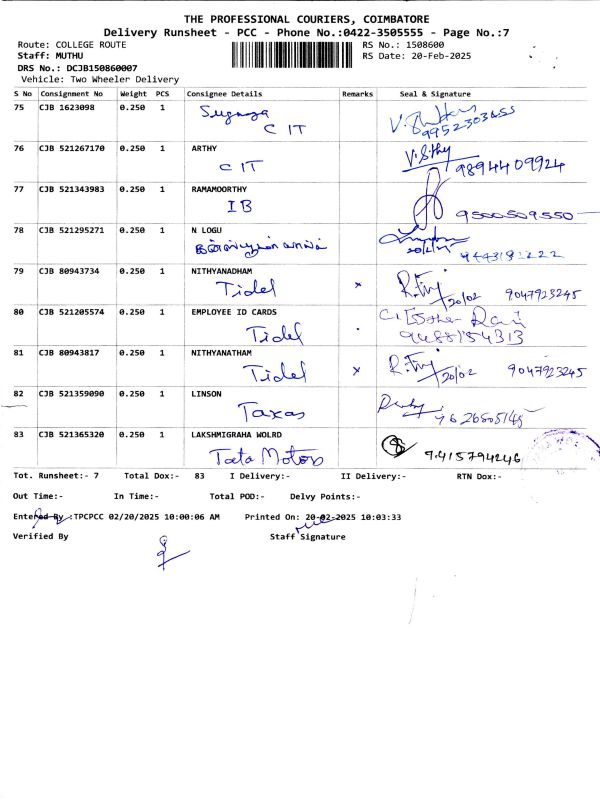 THE PROFESSIONAL COURIERS, COIMBATORE
Delivery Runsheet - PCC - Phone No.:0422-3505555 - Page No.:7
Route: COLLEGE ROUTE RS No.: 1508600
Staff: MUTHU RS Date: 20-Feb-2025
DRS No.: DCJB150860007
Vehicle: Two Wheeler Delivery
S No Consignment No Weight PCS Consignee Details Remarks Seal & Signature
75 CJB 1623098 0.250 1
CIT
76 CJB 521267170 0.250 1 ARTHY V.Sithy
CIT 9894409924
77 CJB 521343983 0.250 1 RAMAMOORTHY
IB 9500509550
78 CJB 521295271 0.250 1 N LOGU
79 CJB 80943734 0.250 1 NITHYANADHAM
Tidel x 20/02 9047923245
80 CJB 521205574 0.250 1 EMPLOYEE ID CARDS
Tidel 9488154313
81 CJB 80943817 0.250 1 NITHYANATHAM
Tidel x 20/02 9047923245
82 CJB 521359090 0.250 1 LINSON
Taxas
83 CJB 521365320 0.250 1 LAKSHMIGRAHA WOLRD
Tata Motors 9415794246
Tot. Runsheet:- 7 Total Dox:- 83 I Delivery:- II Delivery:- RTN Dox:-
Out Time:- In Time:- Total POD:- Delvy Points:-
Entered By :TPCPCC 02/20/2025 10:00:06 AM Printed On: 20-02-2025 10:03:33
Verified By Staff Signature